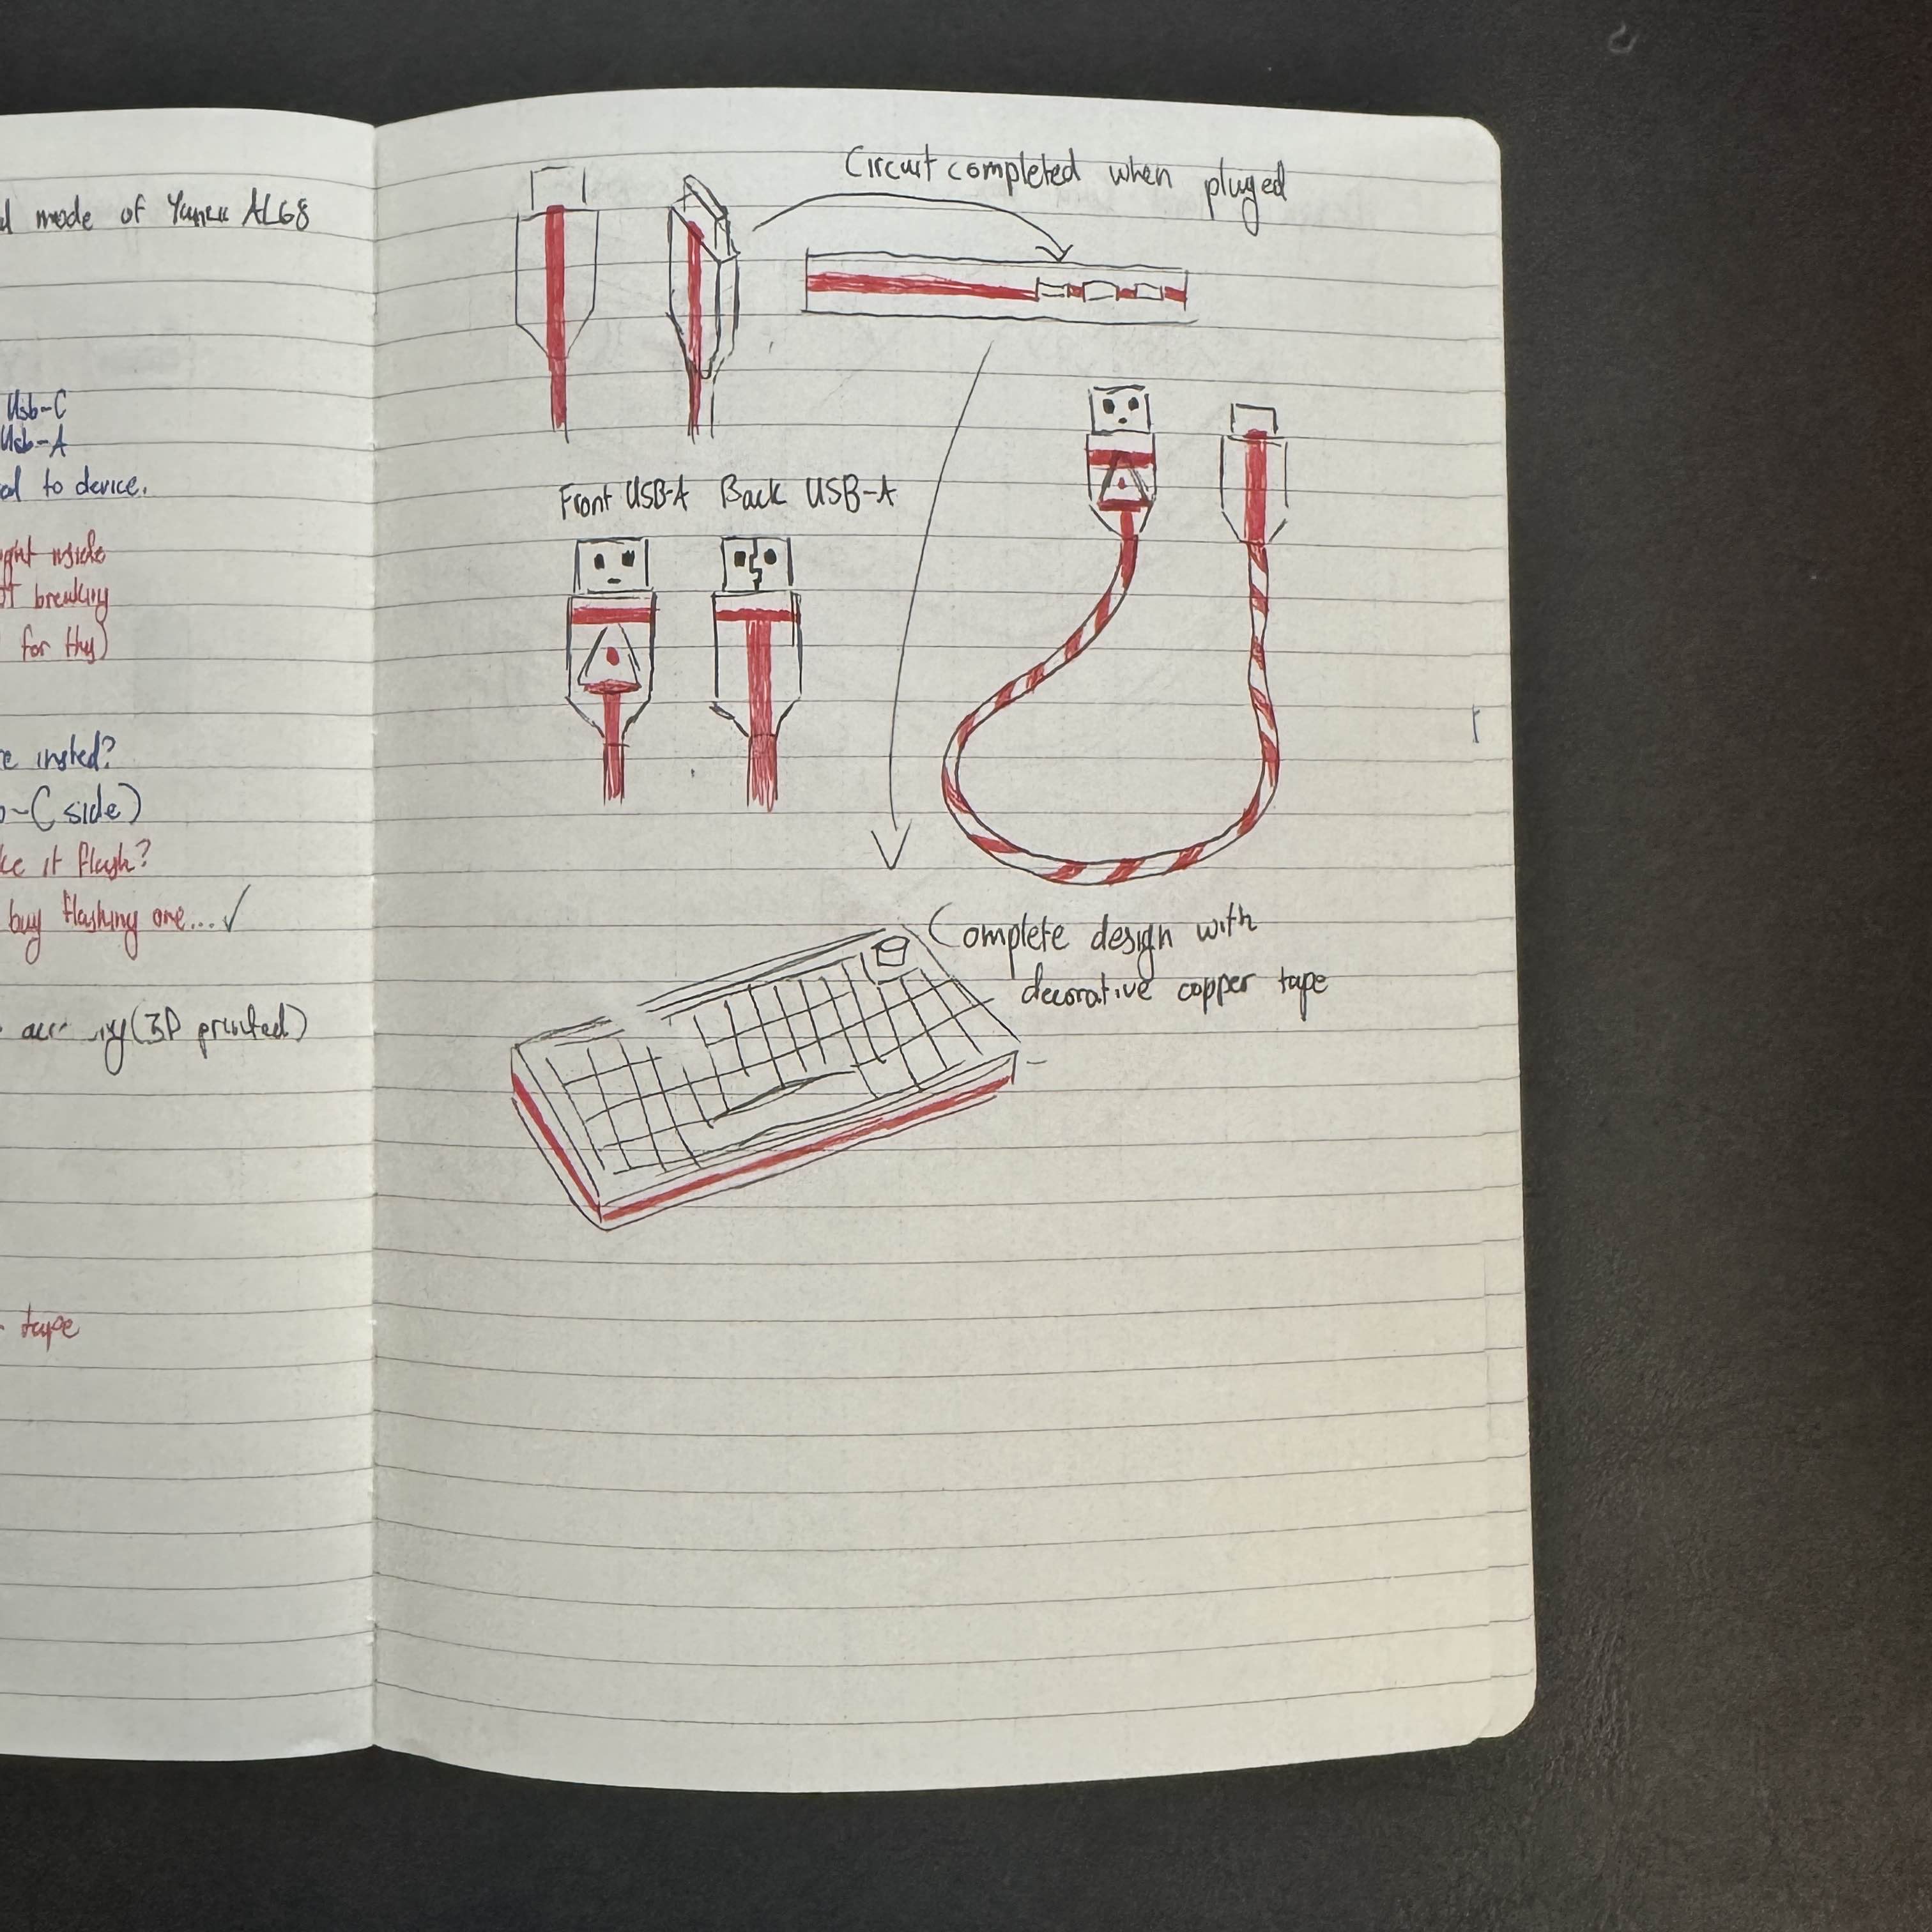 mode of Yunzii AL68
Usb-C
Usb-A
to device.
inside
for
(side)
it flash?
buy flashing one...✓
(3D printed)
tape
Circuit completed when pluged
Front USB-A Back USB-A
Complete design with
decorative copper tape